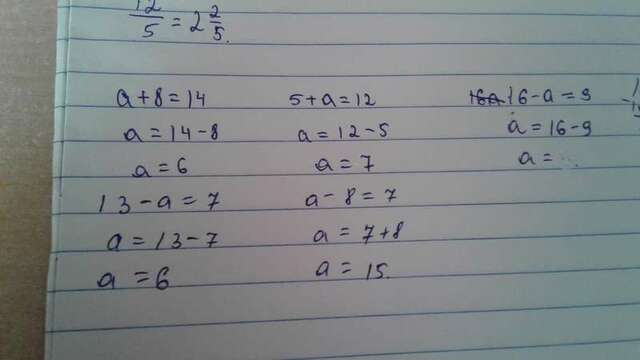 12/5 = 2 2/5.
a + 8 = 14    5 + a = 12    16 - a = 9
a = 14 - 8    a = 12 - 5    a = 16 - 9
a = 6    a = 7    a = ..
13 - a = 7    a - 8 = 7
a = 13 - 7    a = 7 + 8
a = 6    a = 15.